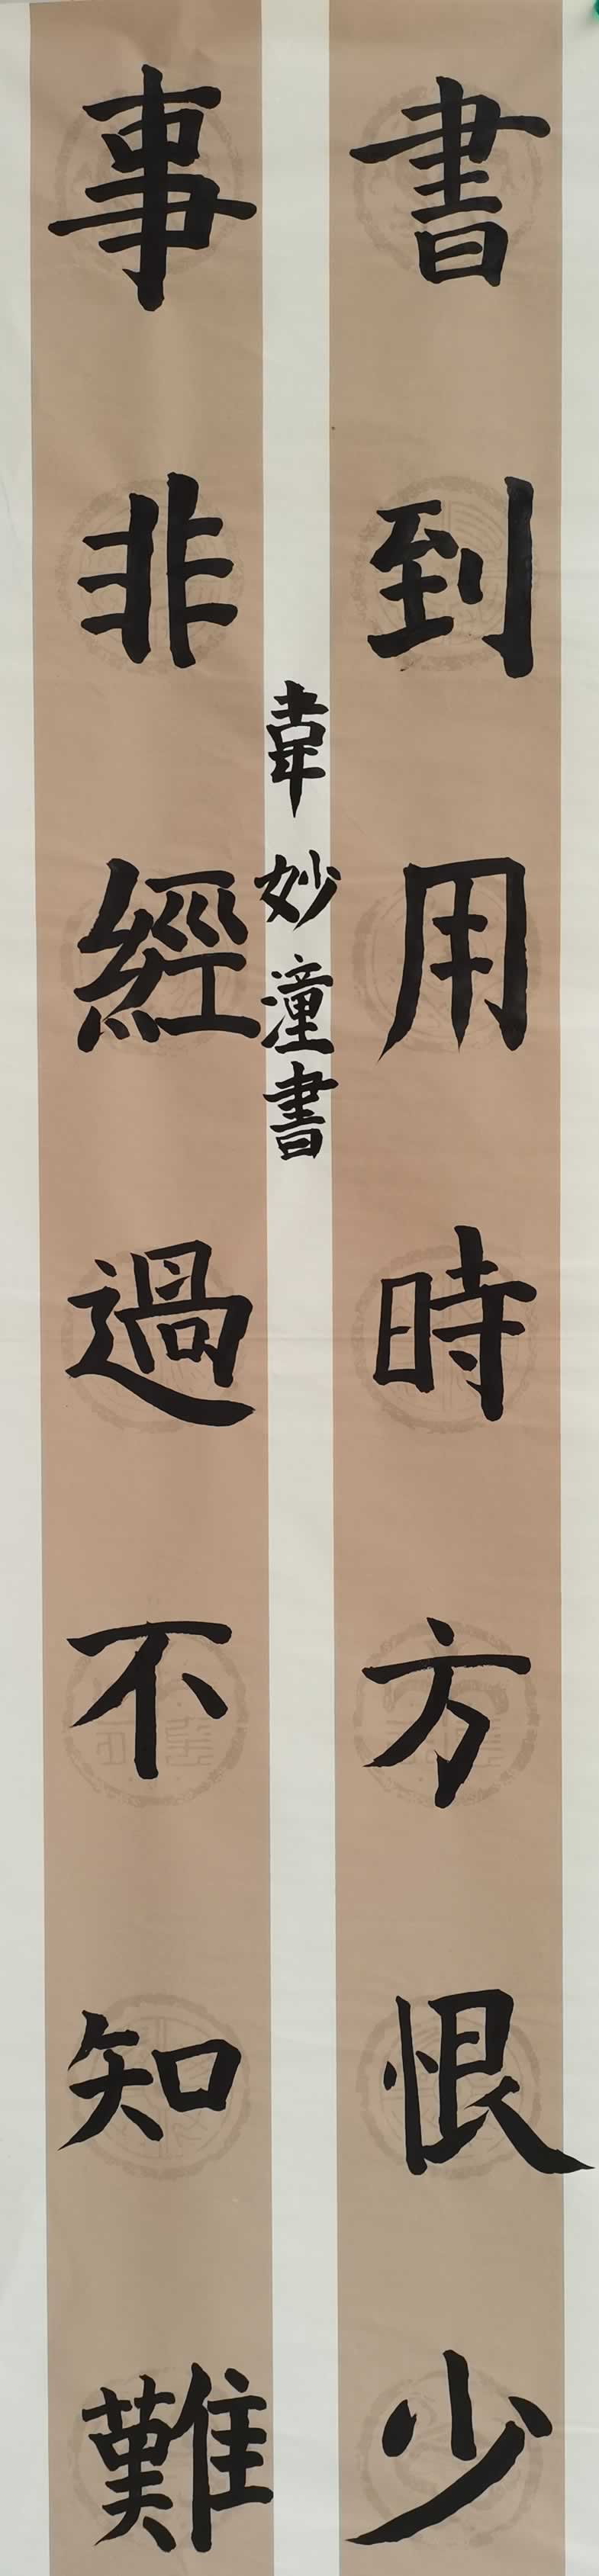 書到用時方恨少
事非經過不知難
韋妙潼書